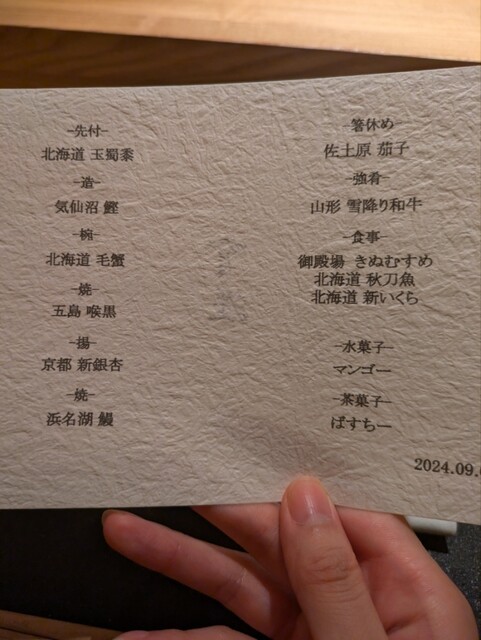 -先付-
北海道 玉蜀黍
-造-
気仙沼 鰹
-椀-
北海道 毛蟹
-焼-
五島 喉黒
-揚-
京都 新銀杏
-焼-
浜名湖 鰻
-箸休め-
佐土原 茄子
-強肴-
山形 雪降り和牛
-食事-
御殿場 きぬむすめ
北海道 秋刀魚
北海道 新いくら
-水菓子-
マンゴー
-茶菓子-
ぱすちー
2024.09.